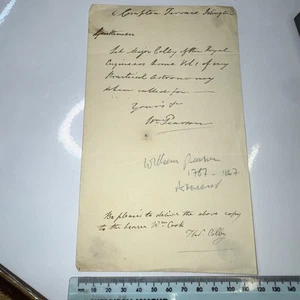 Compton Terrace Islington
Gentlemen
Let Major Colby of the Royal
Engineers have Vol. 1 of my
Practical Astronomy
when called for
Yours &c
Wm Pearson
William Pearson
1767 - 1847
Astronomer
Be pleased to deliver the above copy
to the bearer Wm Cook
Thos Colby